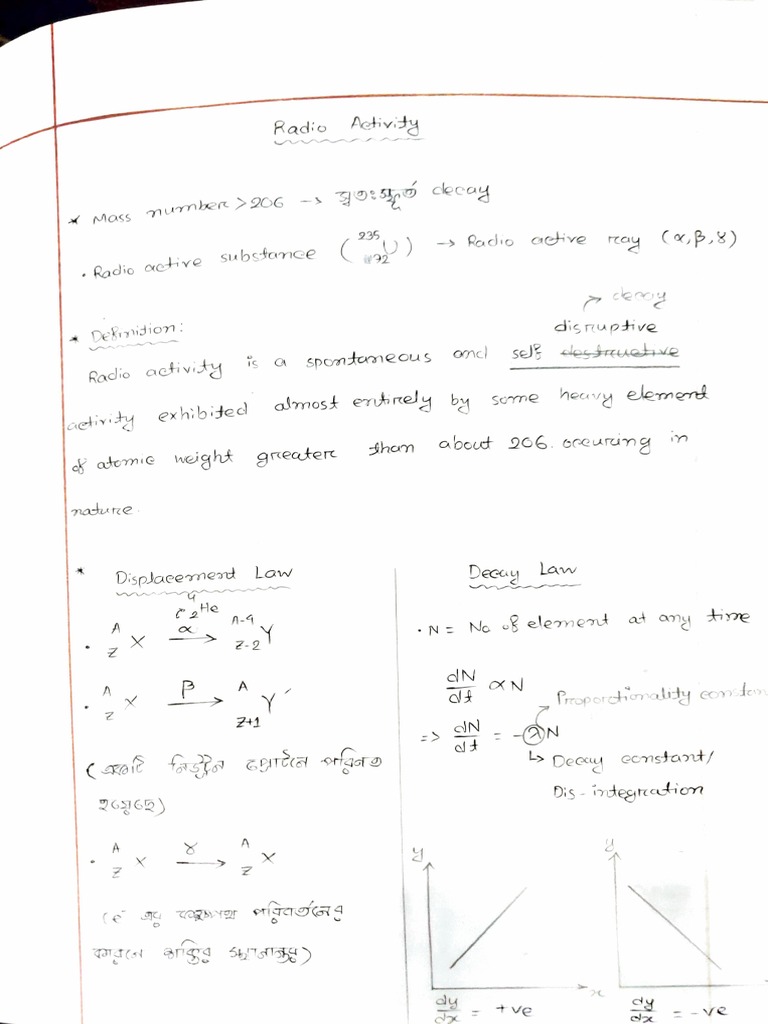 Radio Activity
* Mass number > 206 → স্বতঃস্ফূর্ত decay
• Radio active substance (²³⁵₉₂U) → Radio active ray (α, β, γ)
→ decay
* Definition:
disruptive
Radio activity is a spontaneous and self destructive
activity exhibited almost entirely by some heavy element
of atomic weight greater than about 206. occuring in
nature.
* Displacement Law
⁴₂He
• ᴬ_Z X —α→ ᴬ⁻⁴_Z-2 Y
• ᴬ_Z X —β→ ᴬ_Z+1 Y
(একটি নিউট্রন প্রোটনে পরিনত
হয়েছে)
• ᴬ_Z X —γ→ ᴬ_Z X
(e⁻ এর কক্ষপথ পরিবর্তনের
কারনে শক্তির স্থানান্তর)
Decay Law
• N = No of element at any time
dN/dt ∝ N
Proportionality constan
=> dN/dt = -λN
↳ Decay constant/
Dis-integration
y
x
dy/dx = +ve
y
dy/dx = -ve